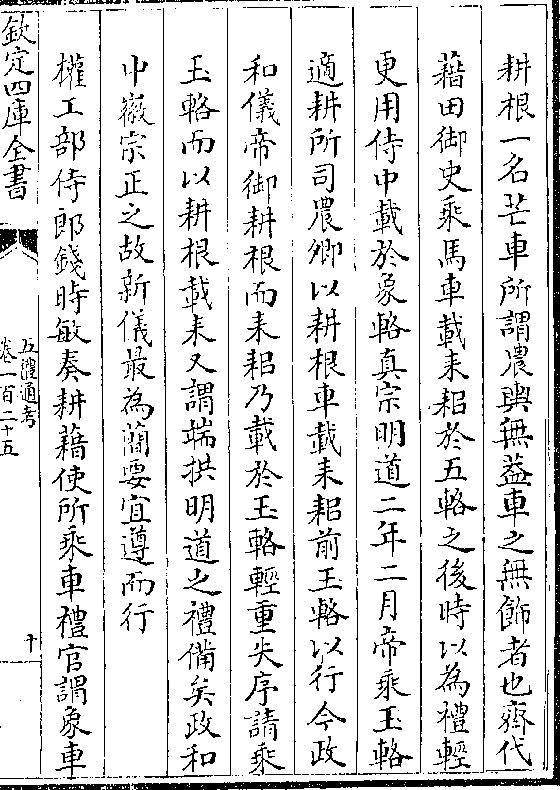 耕根一名芒車所謂農輿無葢車之無飾者也齊代
藉田御史乘馬車載耒耜於五輅之後時以為禮輕
更用侍中載於象輅真宗明道二年二月帝乘玉輅
適耕所司農卿以耕根車載耒耜前玉輅以行今政
和儀帝御耕根而耒耜乃載於玉輅輕重失序請乘
玉輅而以耕根載耒又謂端拱明道之禮備矣政和
中徽宗正之故新儀最為簡要宜遵而行
權工部侍郎錢時敏奏耕藉使所乘車禮官謂象車
欽定四庫全書
五禮通考
卷一百二十五
十